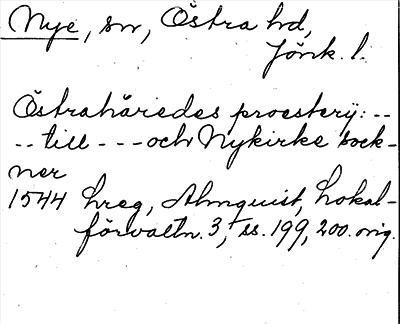 Nye, sn, Östra hd,
Jönk. l.
Östrahäredes proestery: --
-- till --- och Nykirke sock-
ner
1544 hreg, Almquist, Lokal-
förvaltn. 3, ss. 199, 200. orig.